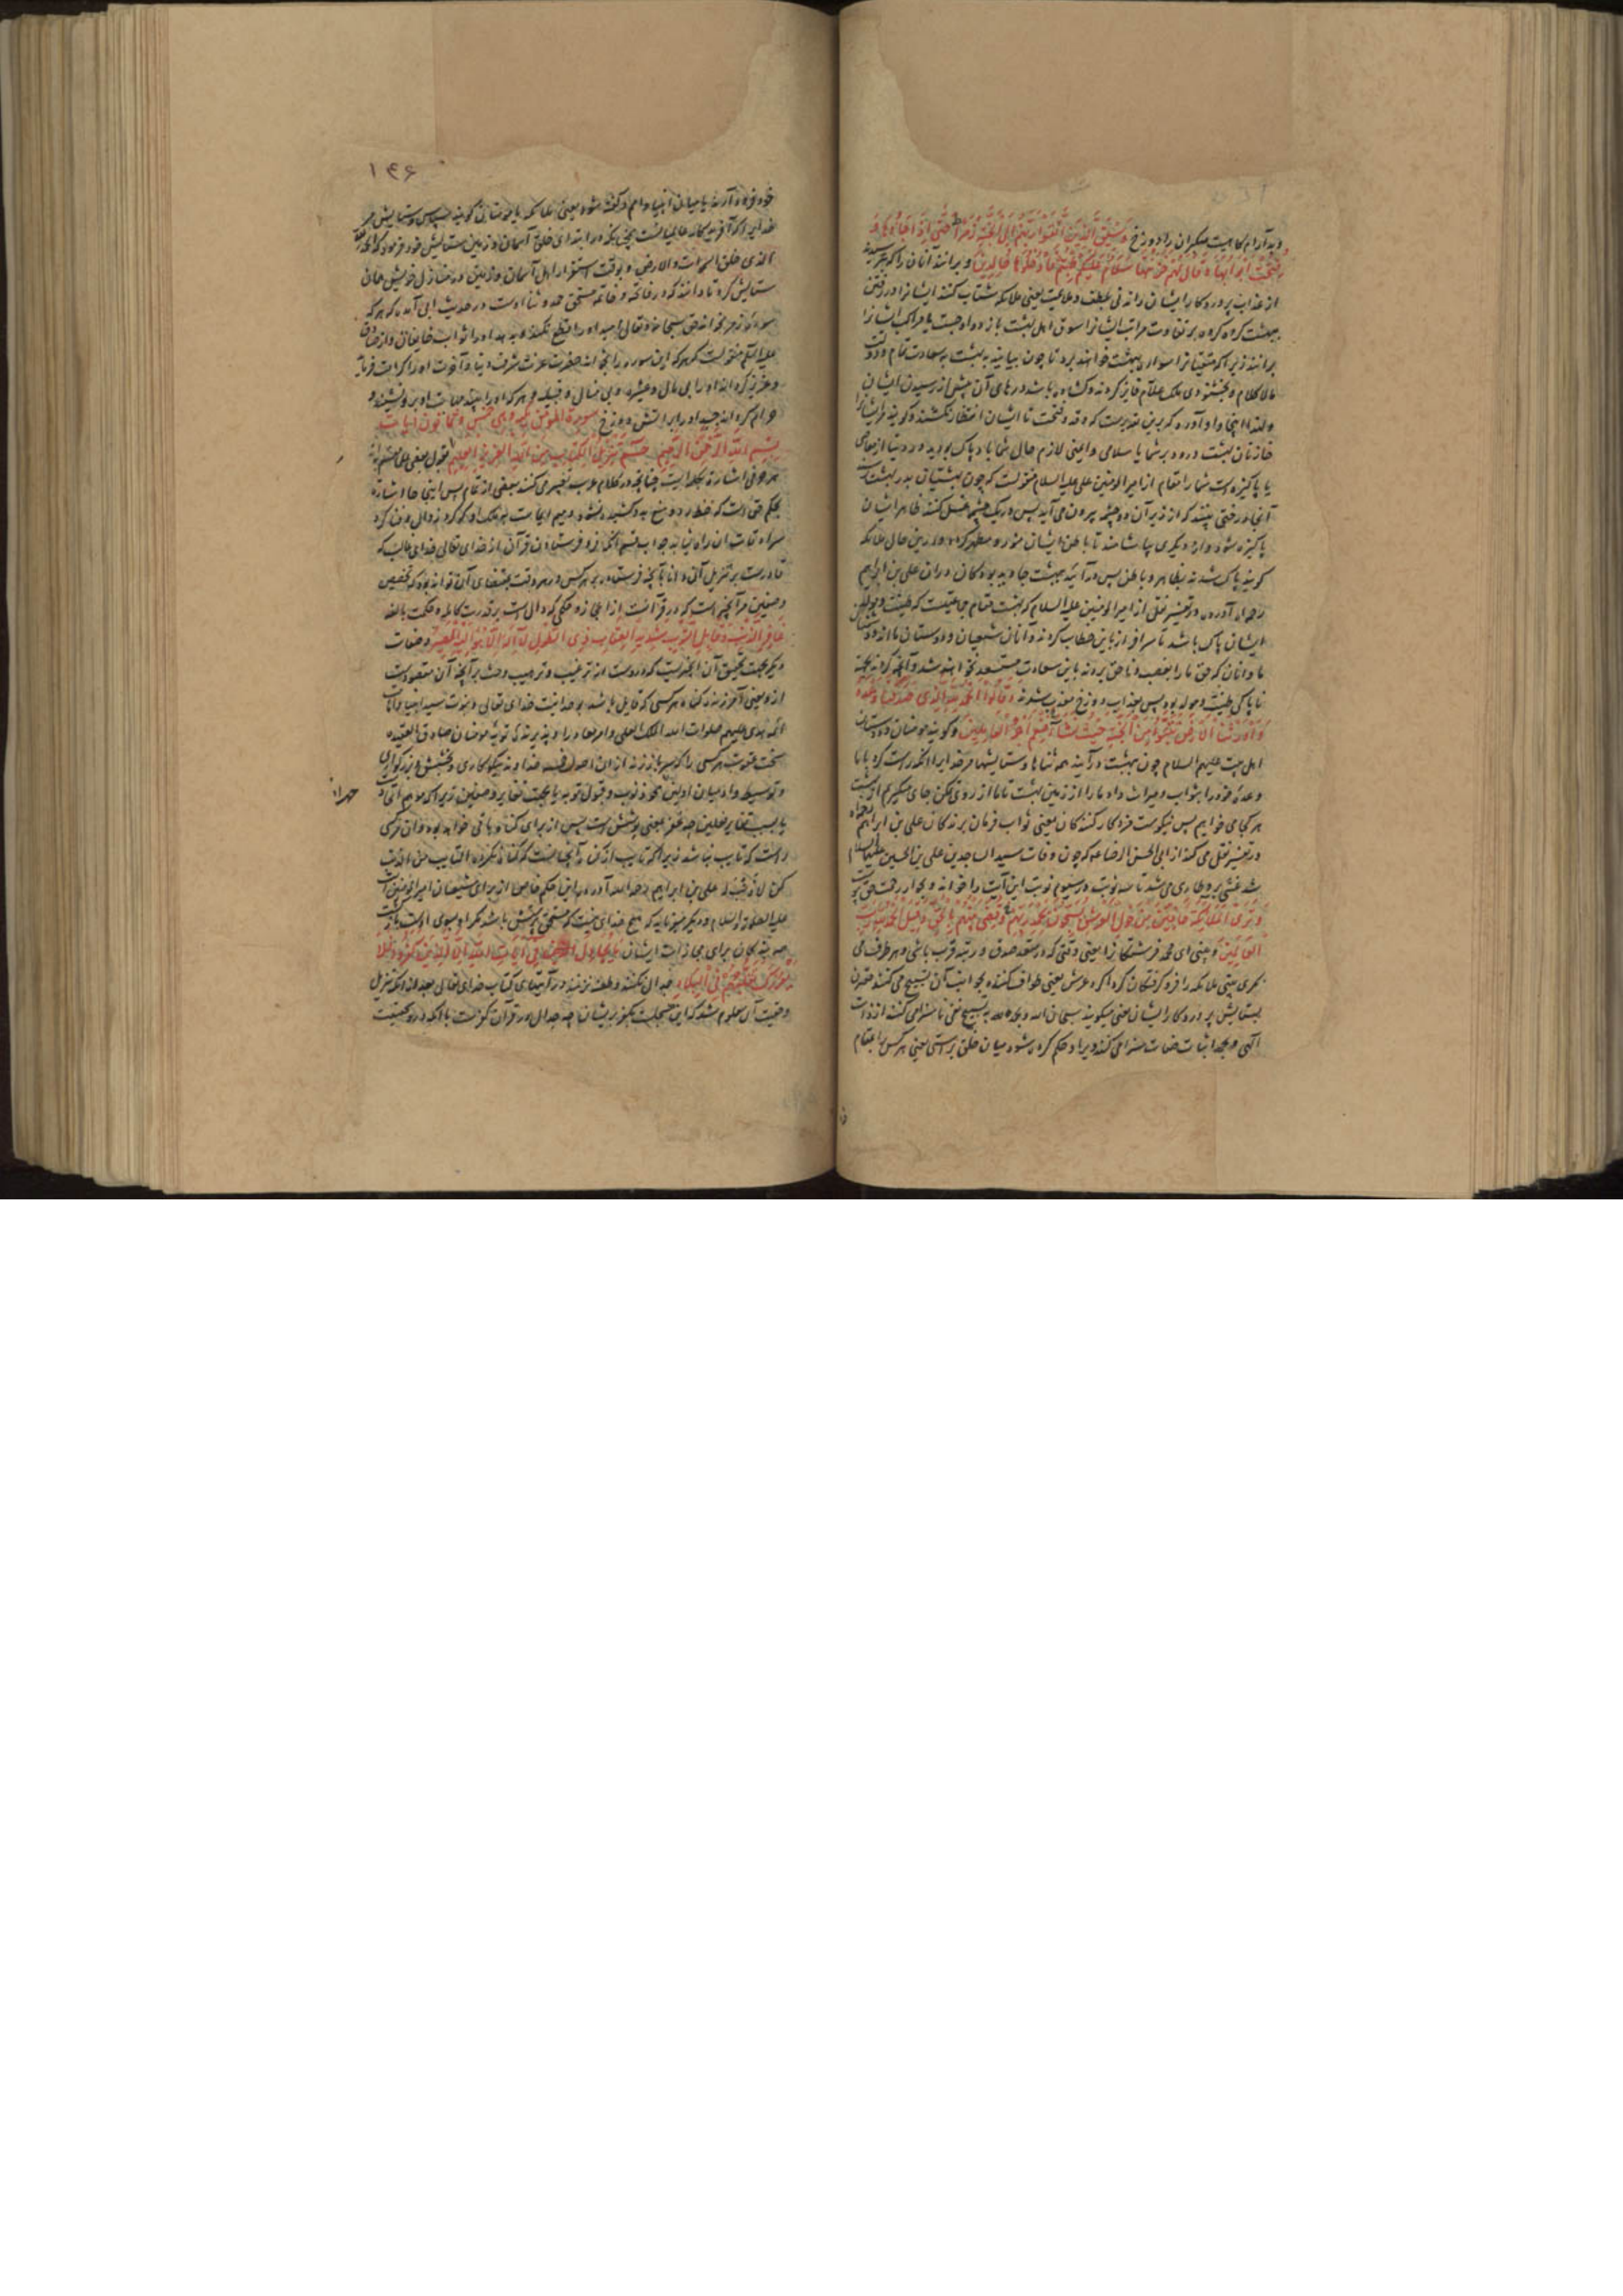 و بد آرام کاهیت متکبران را دوزخ وَسِیقَ الَّذِینَ اتَّقَوْا رَبَّهُمْ إِلَى الْجَنَّةِ زُمَرًا حَتَّى إِذَا جَاؤُهَا وَ
فُتِحَتْ أَبْوَابُهَا وَقَالَ لَهُمْ خَزَنَتُهَا سَلَامٌ عَلَیْكُمْ طِبْتُمْ فَادْخُلُوهَا خَالِدِینَ و برانند آنان را که بترسیدند
از عذاب پروردکار ایشان راندنی بلطف و علامت یعنی ملائکه شتاب کنند ایشانرا در رفتن
ببهشت کروه کروه بر تفاوت مراتب ایشانرا سوق اهل بهشت یا مراکب ایشانرا
برانند زیرا که متقیانرا سوار ببهشت خواهند برد تا چون بیایند به بهشت بسعادت تمام و دولت
مالاکلام و بخشنودی ملک علام فایز کردند و کشاده باشد درهای آن پیش از رسیدن ایشان
و فتحت تا ایشان انتظار نکشند و کویند مر ایشانرا
خازنان بهشت درود بر شما یا سلامتی و ایمنی لازم حال شما باد پاک بودید در دنیا از معاصی
یا پاکیزه است شما را مقام از امیرالمومنین علی علیه السلام منقولست که چون بهشتیان بدر بهشت رسند
آنجا درختی بینند که از زیر آن دو چشمه بیرون می آید پس در یک چشمه غسل کنند ظاهر ایشان
پاکیزه شود و از دیکری بیاشامند تا باطن ایشان منور و مطهر کردد و در این حال ملائکه
کویند پاک شدید بظاهر و باطن پس در آئید ببهشت جاوید بودکان دران علی بن ابراهیم
رحمه الله آورده در تفسیر نقل از امیرالمومنین علیه السلام که بهشت مقام جماعتیست که طینت و مولد
ایشان پاک باشد تا سرافراز باین خطاب کردند و آنان شیعیان و دوستان ما اند و دشمنان
ما و آنان که حق ما را بغصب و ناحق بردند باین سعادت مستسعد نخواهند شد و آنچه کردند بجهة
ناپاکی طینت و مولد بود پس بعذاب دوزخ معذب شوند وَقَالُوا الْحَمْدُ لِلَّهِ الَّذِی صَدَقَنَا وَعْدَهُ
وَأَوْرَثَنَا الْأَرْضَ نَتَبَوَّأُ مِنَ الْجَنَّةِ حَیْثُ نَشَاءُ فَنِعْمَ أَجْرُ الْعَامِلِینَ و کویند مومنان و دوستان
اهل بیت علیهم السلام چون ببهشت درآیند همه ثناها و ستایشها مر خدایرا آنکه راست کرد با ما
وعده خود را بثواب و میراث داد ما را از زمین بهشت تا ما از روی تمکن جای میکیریم از بهشت
هر کجا می خواهیم پس نیکوست مزد کارکنندکان یعنی ثواب فرمان برندکان علی بن ابراهیم
در تفسیر نقل می کند از ابی الحسن الرضا ع که چون وفات سید الساجدین علی بن الحسین علیهما السلام
شد غشی برو طاری می شد تا سه نوبت در سیوم نوبت این آیت را خواند و بجوار رحمت حق پیوست
وَتَرَى الْمَلَائِكَةَ حَافِّینَ مِنْ حَوْلِ الْعَرْشِ یُسَبِّحُونَ بِحَمْدِ رَبِّهِمْ وَقُضِیَ بَیْنَهُمْ بِالْحَقِّ وَقِیلَ الْحَمْدُ لِلَّهِ رَبِّ
الْعَالَمِینَ و بینی ای محمد فرشتکانرا یعنی وقتی که در مقعد صدق و رتبه قرب باشی و بهر طرف می
نکری بینی ملائکه را فرو کرفتکان کرداکرد عرش یعنی طواف کنند بجوانب آن تسبیح می کنند مقترن
بستایش پروردکار ایشان یعنی میکویند سبحان الله وبحمده به تسبیح نفی ناسزا می کنند از ذات
الهی و بحمد اثبات صفات سزا می کنند و یرا و حکم کرده شود میان خلق براستی یعنی هر کس را بمقام
۱۴۶
خود فرود آرند یا میان انبیا و امم و کفته شود یعنی ملائکه یا مومنان کویند سپاس و ستایش مر
خدایرا که آفریدکار عالمیانست همچنانکه در ابتدای خلق آسمان و زمین ستایش خود فرمود که الحمد لله
الذی خلق السموات والارض و بوقت استقرار اهل آسمان و زمین در منازل خویش همان
ستایش کرد تا دانند که در فاتحه و خاتمه مستحق حمد و ثنا اوست در حدیث ابی آمده که هر که
سوره زمر بخواند حق سبحانه وتعالی امید او را قطع نکند و بدهد او را ثواب خائفان و از صادق
علیه السلم منقولست که هر که این سوره را بخواند حضرت عزت شرف دنیا و آخرت او را کرامت فرماید
و عزیز کرداند او را بی مال و عشیره و بی منال و قبیله و هر که او را بیند مهابت او برو نشیند و
حرام کرداند جسد او را بر آتش دوزخ سورة المومن مکیه وهی خمس وثمانون ایات
بِسْمِ اللَّهِ الرَّحْمَنِ الرَّحِیمِ حم تَنْزِیلُ الْكِتَابِ مِنَ اللَّهِ الْعَزِیزِ الْعَلِیمِ بقول بعضی
هر حرفی اشارة بکلمه ایست چنانچه در کلام عرب تعبیر می کنند ببعضی از تمام پس اینجا حا اشاره
بحکم حق است که خط رد و منع بدو کشیده نشود و میم ایماست به ملک او که کرد زوال و فنا کرد
سرادقات آن راه نیابد جواب قسم آنکه فرو فرستادن قرآن از خدای تعالی خدای غالب که
قادرست بر تنزیل آن دانا بآنچه فرستاد بر هر کس در هر وقت
وصفین مر آنچیز است که در قرآنست از اعجاز و حکمی که دال است بر قدرت کامله و حکمت بالغه
غَافِرِ الذَّنْبِ وَقَابِلِ التَّوْبِ شَدِیدِ الْعِقَابِ ذِی الطَّوْلِ لَا إِلَهَ إِلَّا هُوَ إِلَیْهِ الْمَصِیرُ و صفات
دیکر بجهت تحقیق آن چیزیست که دروست از ترغیب و ترهیب و حث بر آنچه آن مقصودست
ازو یعنی آمرزنده کناه هر کسی که قایل باشد بوحدانیت خدای تعالی و نبوت سید انبیا و امامت
ائمه هدی علیهم صلوات الله الملک العلی و امر معاد را و پذیرنده توبه مومنان صادق العقیده
سخت عقوبت هر کسی را که سر باز زند از این اصول خداوند نیکوکاری و بخشش و بزرکواری
و توسیط واو میان اولین محو ذنوب و قبول توبه یا بجهت تغایر وصفین زیرا که موهم اتحاد
یا بسبب تغایر فعلین چه غفر بمعنی پوشش است پس از برای کناه باقی خواهد بود و آن مر کسی
راست که تایب نباشد زیرا که تایب از کناه آنچنانست که کناه نکرده التایب من الذنب
کمن لا ذنب له علی بن ابراهیم رحمه الله آورده که این حکم خاص از برای شیعیان امیرالمومنین است
علیه الصلوة والسلام و دیکر میفرماید که هیچ خدای نیست که مستحق پرستش باشد مکر او بسوی اوست بازکشت
همه بندکان برای مجازات ایشان مَا یُجَادِلُ فِی آیَاتِ اللَّهِ إِلَّا الَّذِینَ كَفَرُوا فَلَا
یَغْرُرْكَ تَقَلُّبُهُمْ فِی الْبِلَادِ جدال نکنند و طعنه نزنند در آیتهای کتاب خدای تعالی بعد از آنکه تنزیل
و حقیت آن معلوم شد که این مسجلست بکفر ایشان چه جدال در قرآن کفرست با آنکه در حقیقت